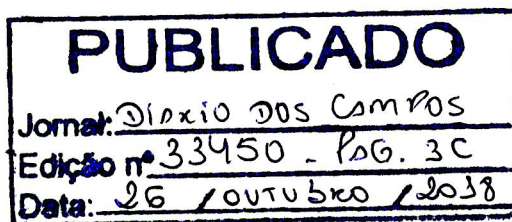 PUBLICADO
Jornal: DIARIO DOS CAMPOS
Edição nº 33450 - PAG. 3C
Data: 26 / OUTUBRO / 2018